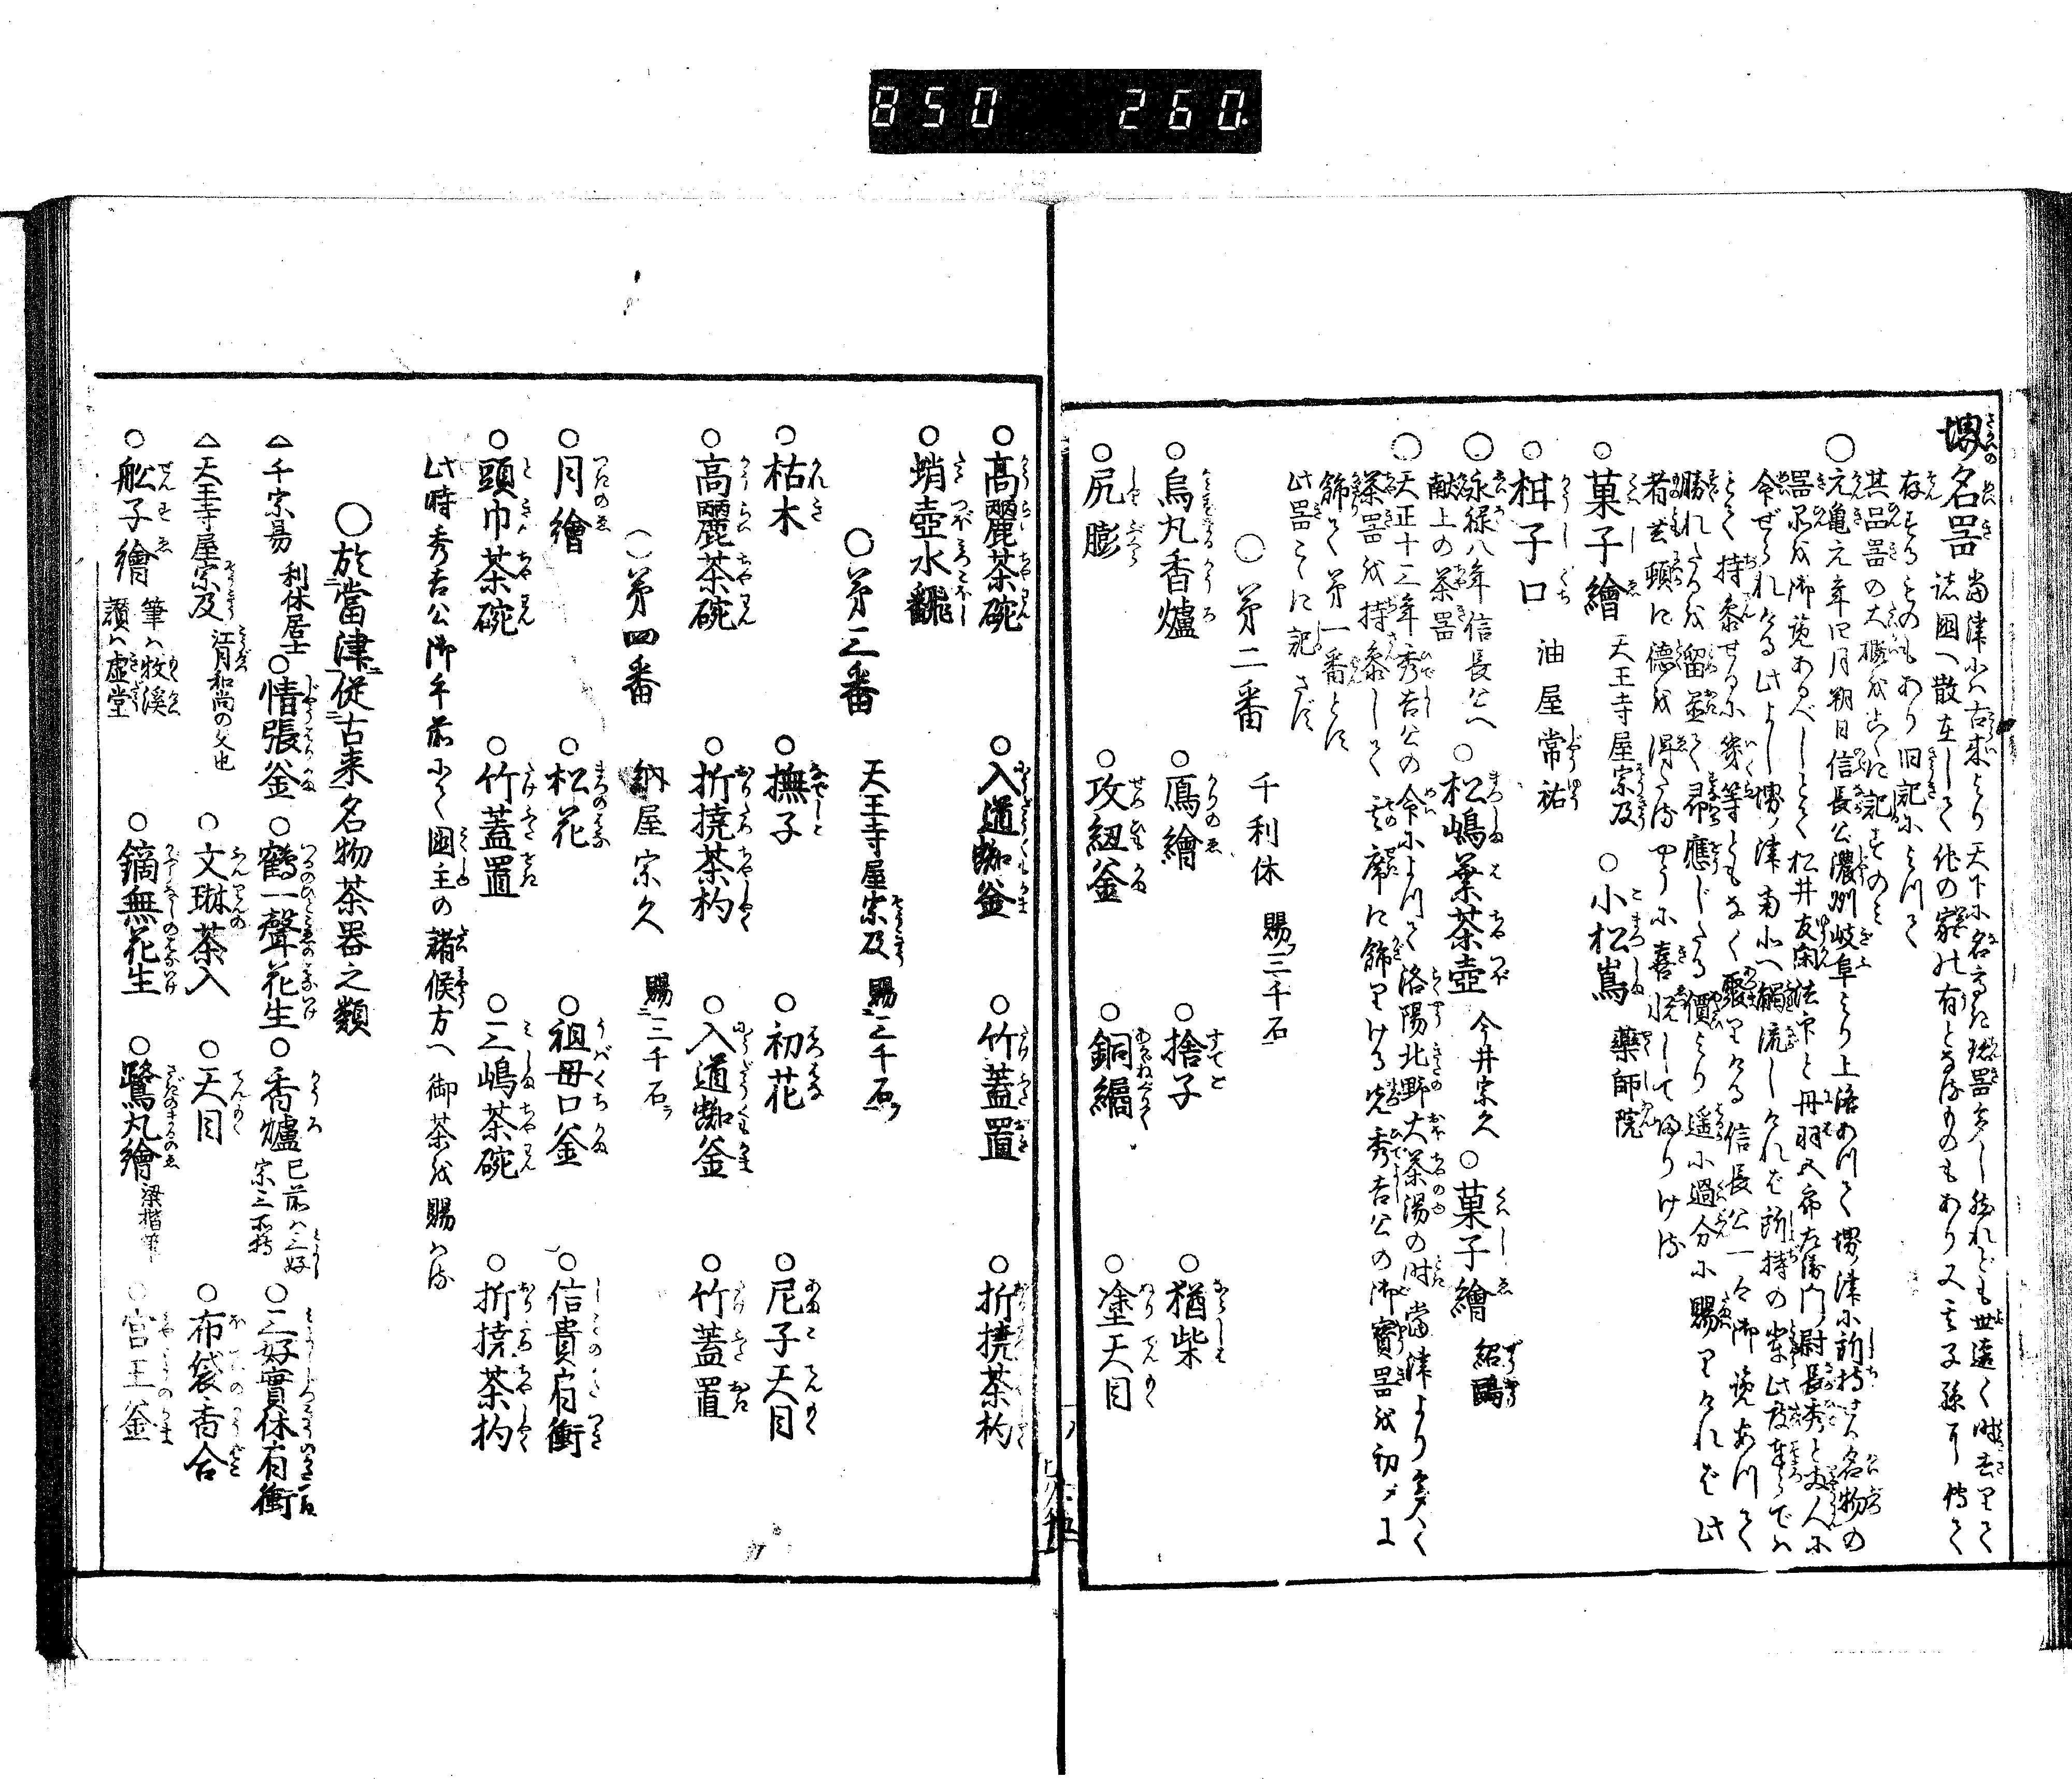 850 260.
堺名噐 當津ハ古來より天下に名高き珎噐多し然れども世遠く時去りて
諸國へ散在して他の家の有となるものもあり又其子孫に傳て
存するものもあり旧記によつて
其品噐の大概をこゝに記すのミ
○元亀元年四月朔日信長公濃州岐阜より上洛あつて堺津に所持する名物の
噐品を御覧あるべしとて松井友閑法印と丹羽五郎左衛門尉長秀と両人に
令ぜられける此よし堺津南北へ觸流しければ所持の輩此度
とて持参せるに等ともなく聚りける信長公一々御覧あつて
勝れたるを留置て尋應じたる價より遥に過分に賜りければ此
者共頓に徳を得たるやうに喜悦して帰りける
○菓子繪 天王寺屋宗及 ○小松嶌 藥師院
○柑子口 油屋常祐
○永禄八年信長公へ献上の茶噐 ○松嶋葉茶壺 今井宗久 ○菓子繪 紹鷗
○天正十三年秀吉公の命によつて洛陽北野大茶湯の時當津より多く
茶噐を持参して其席に飾りける先秀吉公の御寳噐を初メに
飾て第一番とす
此噐こゝに記さず
○第二番 千利休 賜三千石
○烏丸香爐 ○鴈繪 ○捨子 ○楢柴
○尻膨 ○攻紐釜 ○銅 ○塗天目
○高麗茶碗 ○入道蜘釜 ○竹蓋置 ○折撓茶杓
○蛸壺水飜
○第三番 天王寺屋宗及 賜三千石
○枯木 ○撫子 ○初花 ○尼子天目
○高麗茶碗 ○折撓茶杓 ○入道蜘釜 ○竹蓋置
○第四番 納屋宗久 賜三千石
○月繪 ○松花 ○祖母口釜 ○信貴肩衝
○頭巾茶碗 ○竹蓋置 ○三嶋茶碗 ○折撓茶杓
此時秀吉公御手前にて國主の諸候方へ御茶を賜ハる
○於當津従古来名物茶器之類
△千宗易 利休居士 ○情張釜 ○鶴一聲花生 ○香爐 已前ハ三好宗三所持 ○三好實休肩衝
△天王寺屋宗及 江月和尚の父也 ○文琳茶入 ○天目 ○布袋香合
○舩子繪 筆ハ牧溪讃ハ虚堂 ○鏑無花生 ○鷺丸繪 梁楷筆 ○宮王釜